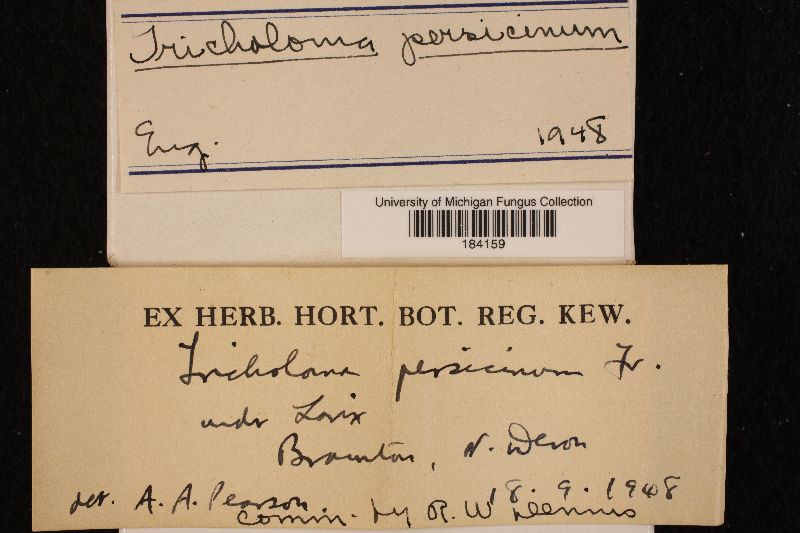 Tricholoma persicinum
Eng. 1948
University of Michigan Fungus Collection
184159
EX HERB. HORT. BOT. REG. KEW.
Tricholoma persicinum Fr.
under Larix
Braunton, N. Devon
18.9.1948
det. A. A. Pearson
comm. by R. W Dennis